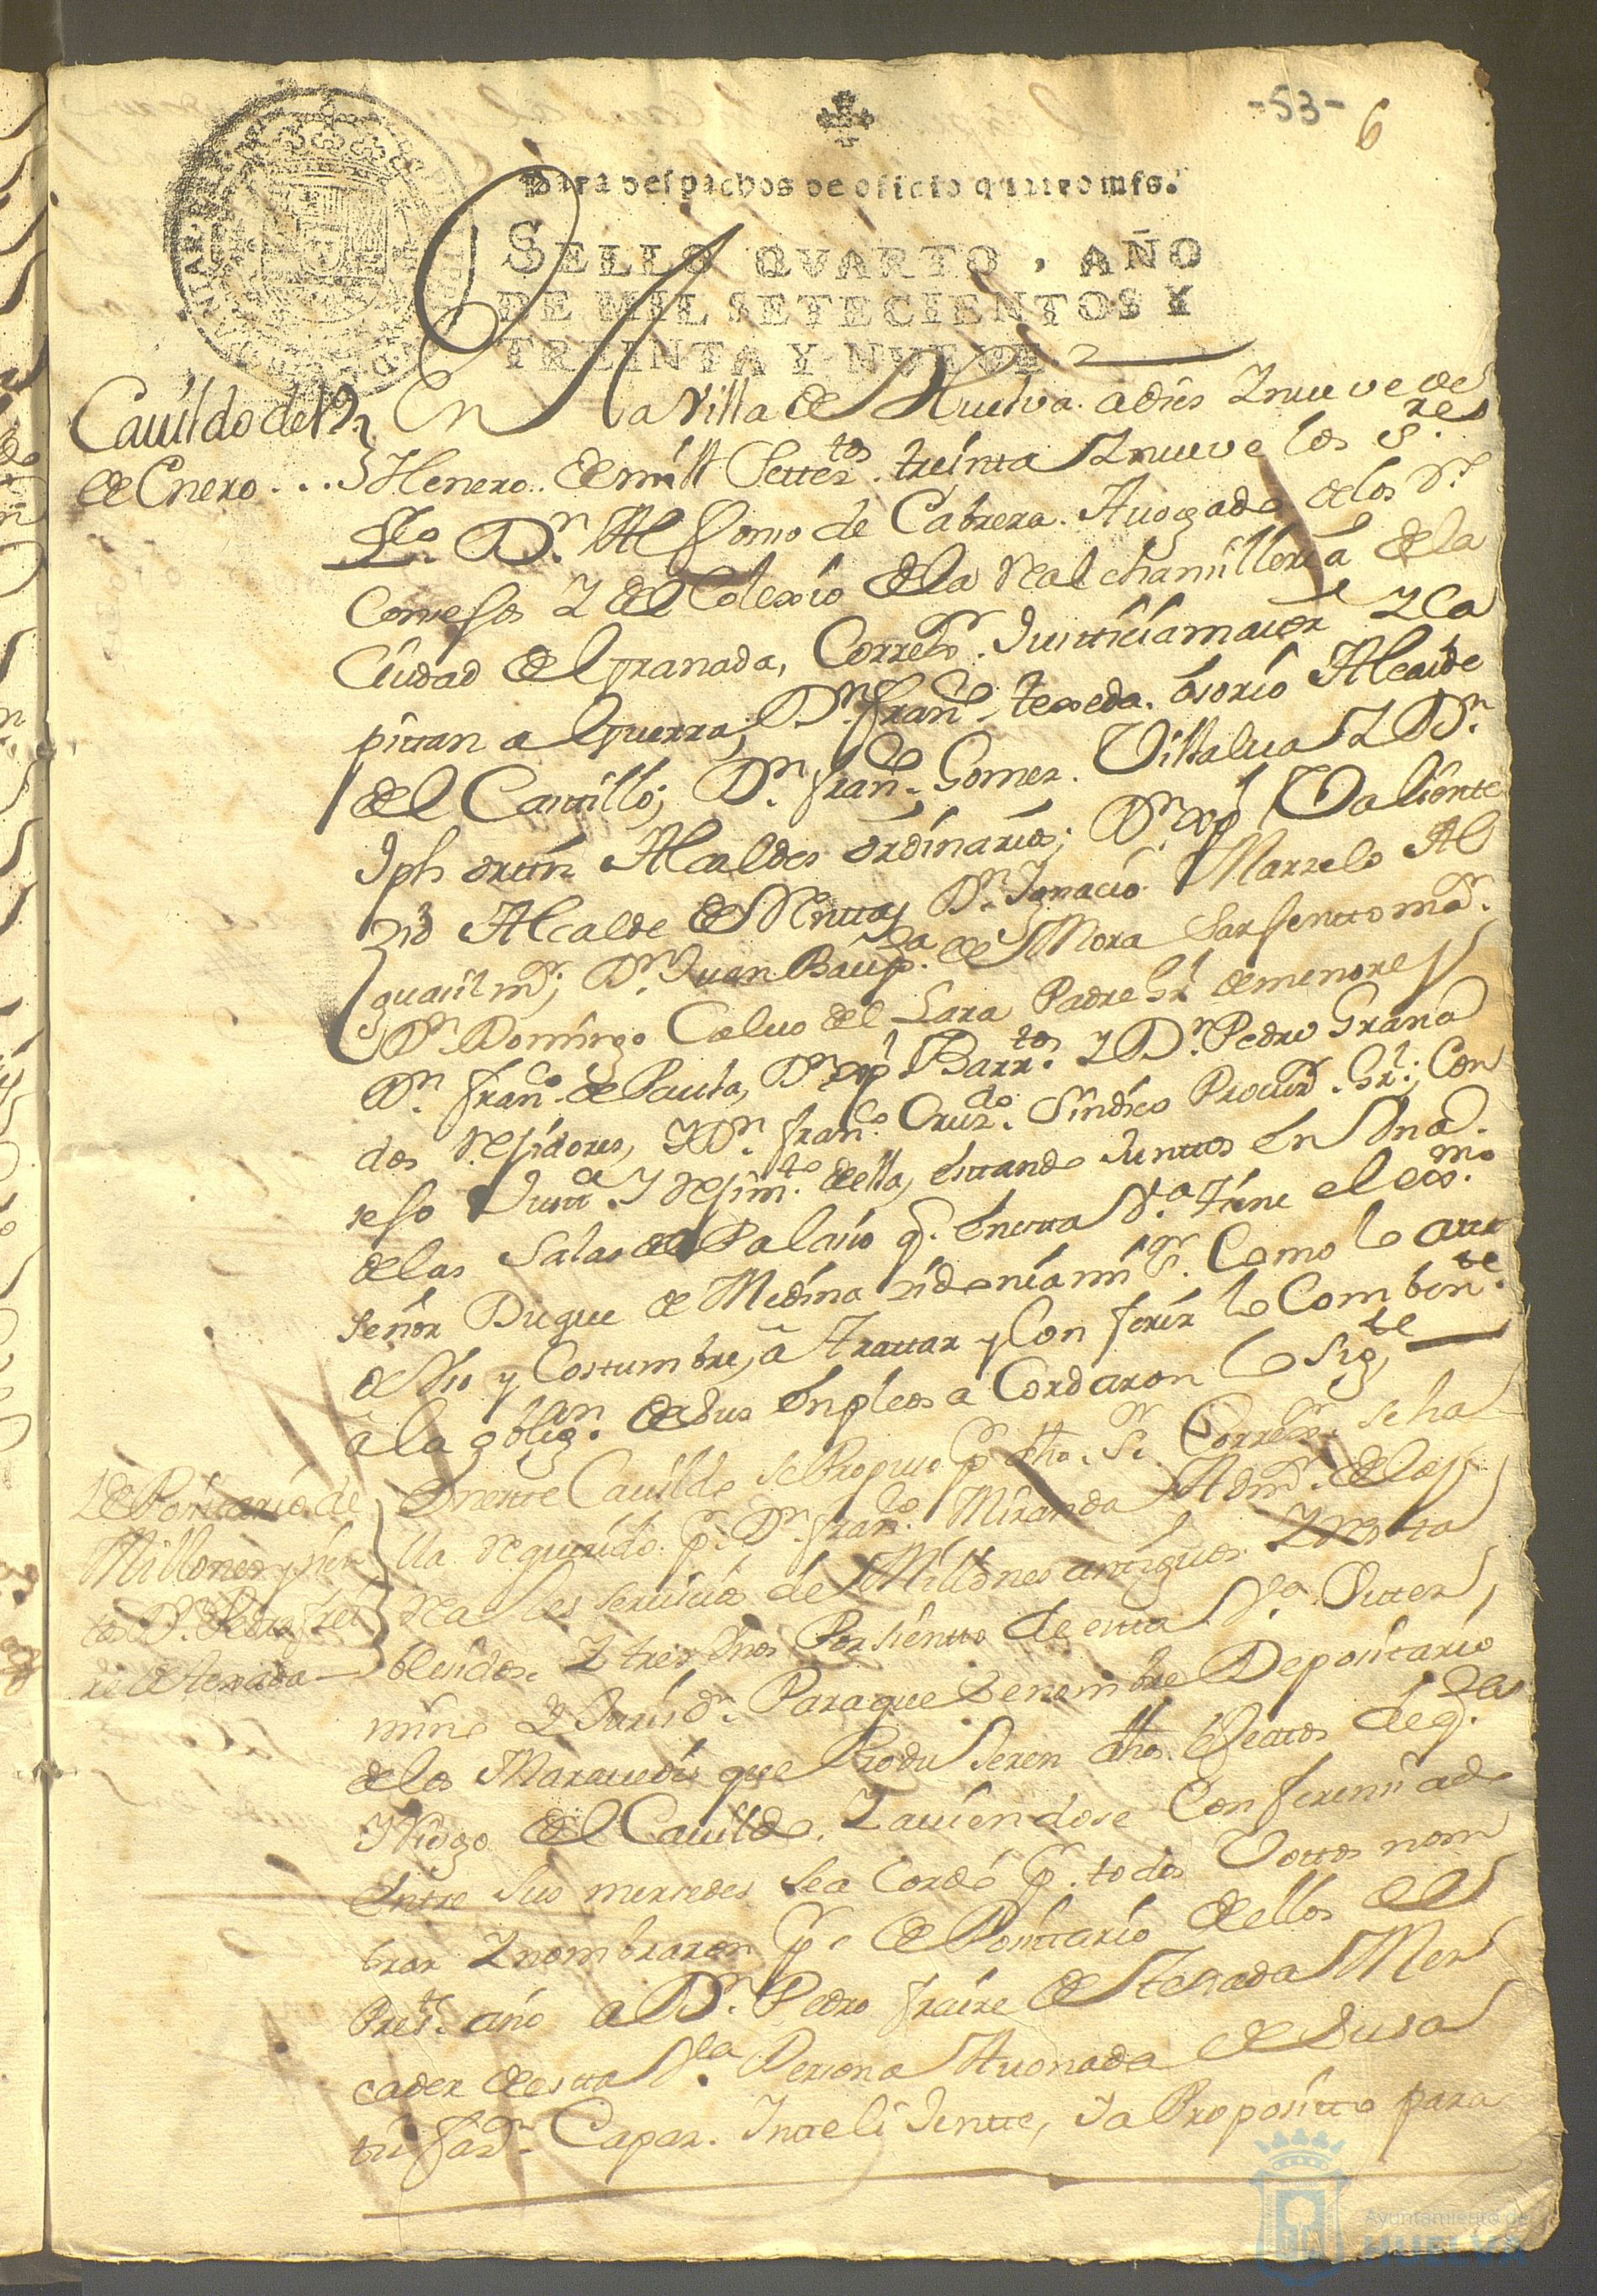 -53- 6
Para despachos de oficio quatro mrs.
SELLO QVARTO, AÑO
DE MIL SETECIENTOS Y
TREINTA Y NVEVE
Cauildo de 19
de Enero...
En la Villa de Huelva a dies Y nueve de
Henero de mill Settetos. treinta Y nueve los Sres
Lizdo. Dn. Alfonso de Cabrera. Auogado de los Rs.
Consejos Y del Colexio de la Real chansilleria de la
Ciudad de Granada, Correxor. Justticia maior Y Ca
pittan a Guerra; Dn. Franco. texeda. osorio Alcaide
del Casttillo; Dn. Franco. Gomez. Villalua Y Dn.
Jph ortiz Alcaldes ordinarios; Dn. Xpl Valiente
Alcalde de Mestta, Dn. Ignacio Marzelo Al
guasil mor; Dn. Juan Baupta. de Mora Sarjentto mor.
Dn. Domingo Calvo del Lara Padre Gl. de menores
Dn. Franco. de Pauta, Dn. Xpl Barrtos. Y Dn. Pedro Grana
dos Rejidores, Y Dn. Franco. Cruzdo. Sindico Procuror. Gl.; Con
sejo Justta. Y Rejimto. della, estando Junttos en Vna
de las Salas del Palacio q. en esta Va. tiene el exmo.
señor Duque de Medina sidonia mi Sr. Como lo an
de Vso y Costumbre, a trattar y Conferir lo Combente.
a la obligan. de Sus Enpleos a Cordaron lo Sigte
Depositario de
Millones y sien
tos Dn. Pedro frei
re de texada
En este Cauildo Se Propuso pr. dho. Sr. Correxor. Se ha
lla Requerido pr. Dn. Franco. Miranda Admor. de los
Reales Seruicios de Millones antiguos Y
blesidos. Y tres Vnos Por sientto de esta Va. Su ter
mino Y Jurisdn. Para que Se nombre Depositario
de los Marauedis que Produjeren dhos. efectos de q.
Cargo del Cauildo, Y auiendose Conferensiado
entre Sus mersedes Se a Cordó pr. todos Vottos nom
brar Y nombraron pr. Deposittario dellos el
Prete. año a Dn. Pedro fraire de texada Mer
cader desta Va. Persona Auonada de Su sa
tisfazn. Capaz. Intteli Jentte, Y a Proposito para
Ayuntamiento de
HUELVA